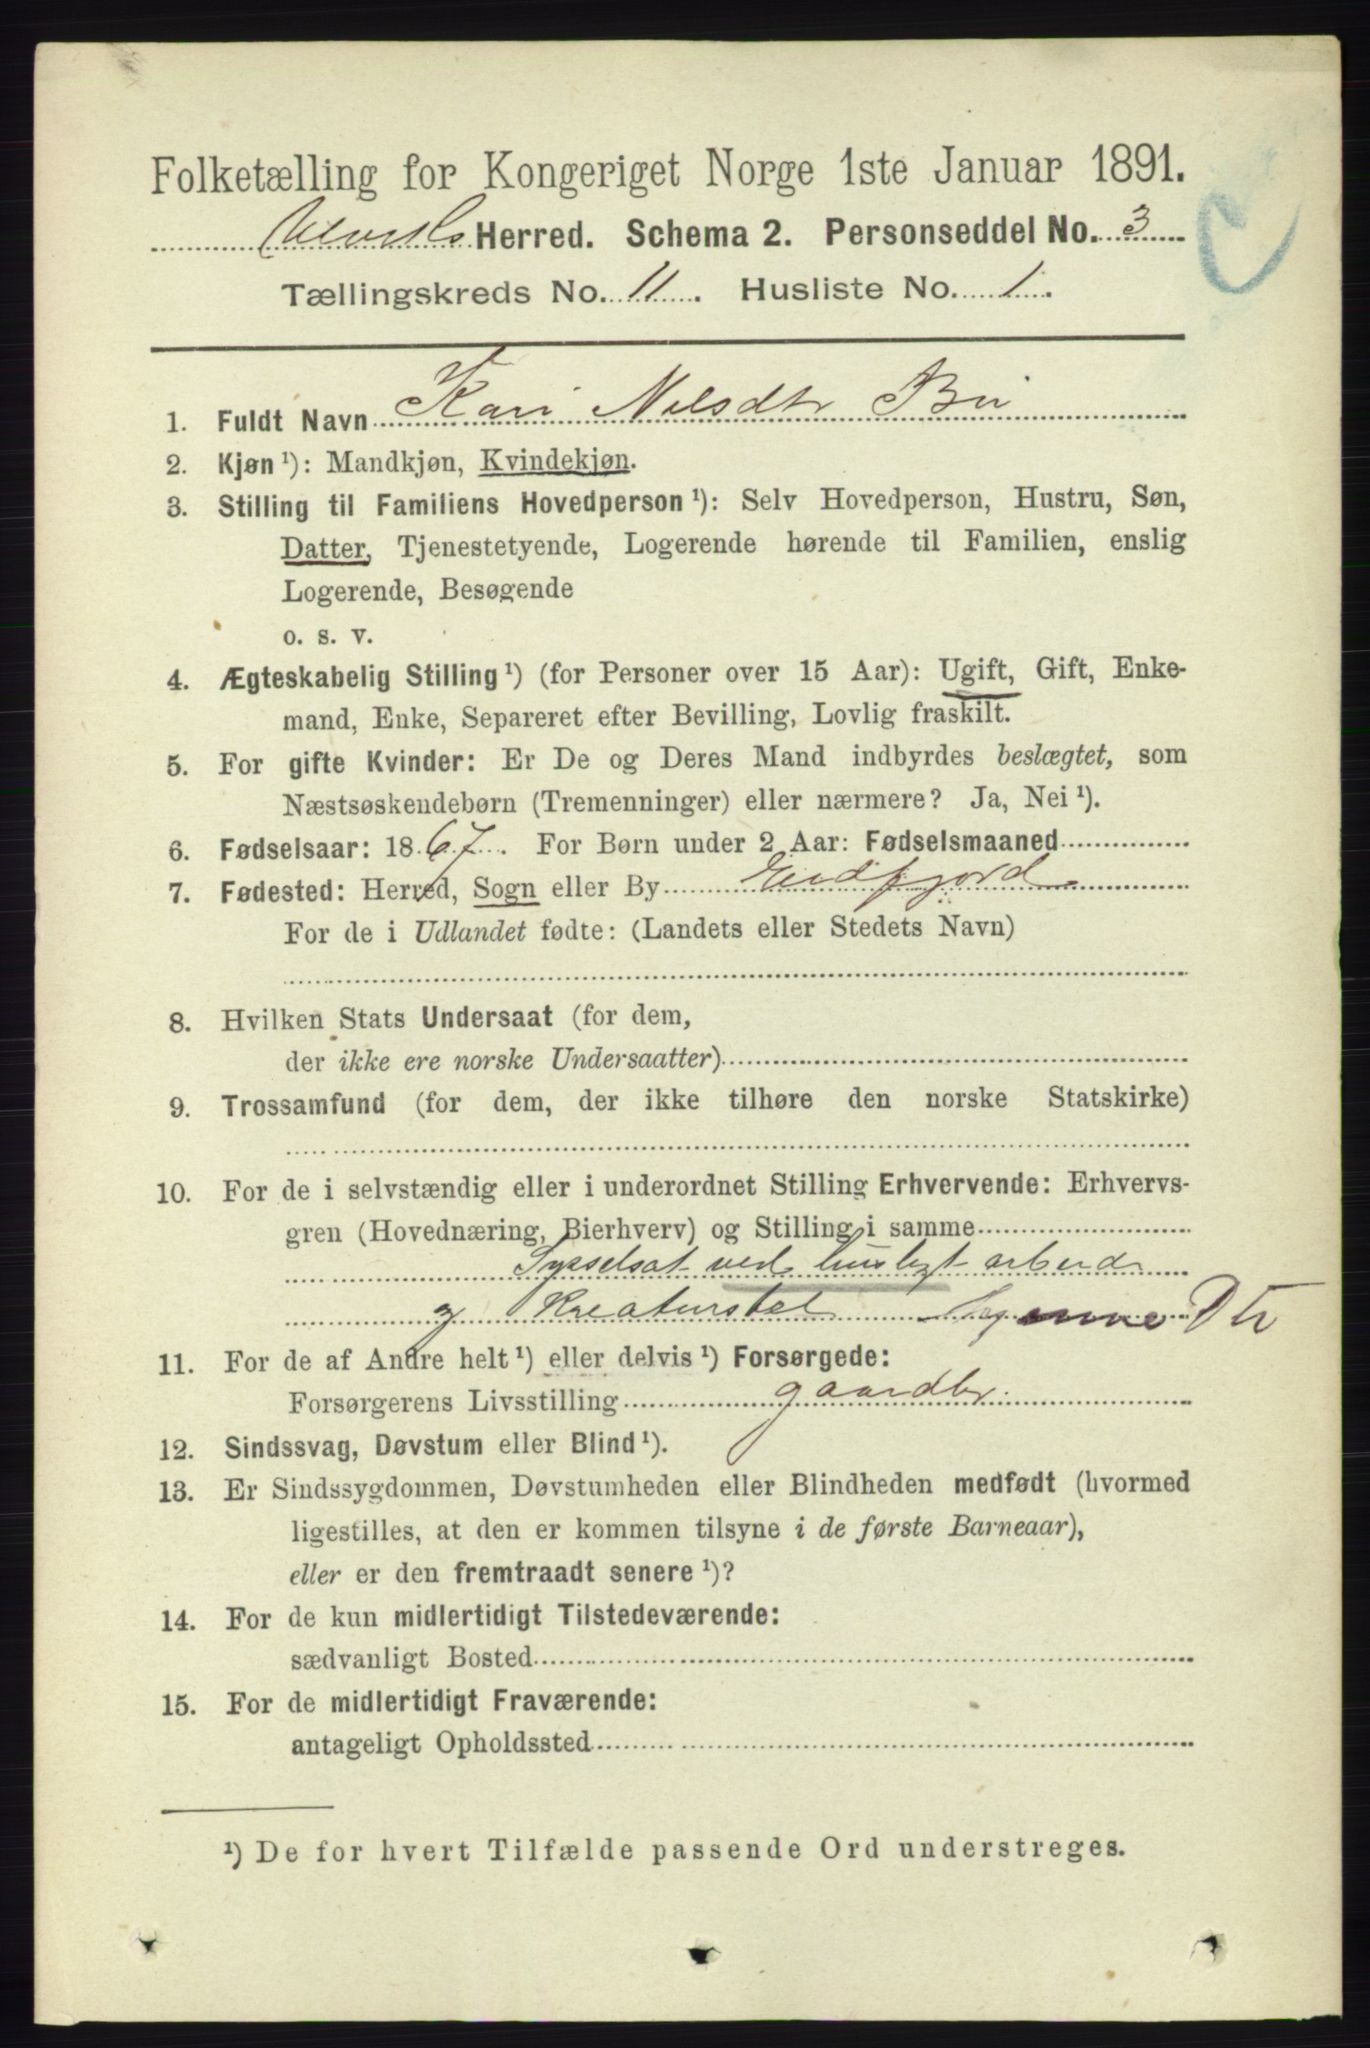 Folketælling for Kongeriget Norge 1ste Januar 1891.
Herred. Schema 2. Personseddel No. 3
Tællingskreds No. 11. Husliste No. 1.
1. Fuldt Navn Kari Nilsdtr Bu
2. Kjøn ¹): Mandkjøn, Kvindekjøn.
3. Stilling til Familiens Hovedperson ¹): Selv Hovedperson, Hustru, Søn,
Datter, Tjenestetyende, Logerende hørende til Familien, enslig
Logerende, Besøgende
o. s. v.
4. Ægteskabelig Stilling ¹) (for Personer over 15 Aar): Ugift, Gift, Enke-
mand, Enke, Separeret efter Bevilling, Lovlig fraskilt.
5. For gifte Kvinder: Er De og Deres Mand indbyrdes beslægtet, som
Næstsøskendebørn (Tremenninger) eller nærmere? Ja, Nei ¹).
6. Fødselsaar: 1867. For Børn under 2 Aar: Fødselsmaaned
7. Fødested: Herred, Sogn eller By Eidfjord
For de i Udlandet fødte: (Landets eller Stedets Navn)
8. Hvilken Stats Undersaat (for dem,
der ikke ere norske Undersaatter)
9. Trossamfund (for dem, der ikke tilhøre den norske Statskirke)
10. For de i selvstændig eller i underordnet Stilling Erhvervende: Erhvervs-
gren (Hovednæring, Bierhverv) og Stilling i samme
Sysselsat ved husligt arbeide
og Kreaturstel Dtr
11. For de af Andre helt ¹) eller delvis ¹) Forsørgede:
Forsørgerens Livsstilling gaardbr.
12. Sindssvag, Døvstum eller Blind ¹).
13. Er Sindssygdommen, Døvstumheden eller Blindheden medfødt (hvormed
ligestilles, at den er kommen tilsyne i de første Barneaar),
eller er den fremtraadt senere ¹)?
14. For de kun midlertidigt Tilstedeværende:
sædvanligt Bosted
15. For de midlertidigt Fraværende:
antageligt Opholdssted
¹) De for hvert Tilfælde passende Ord understreges.